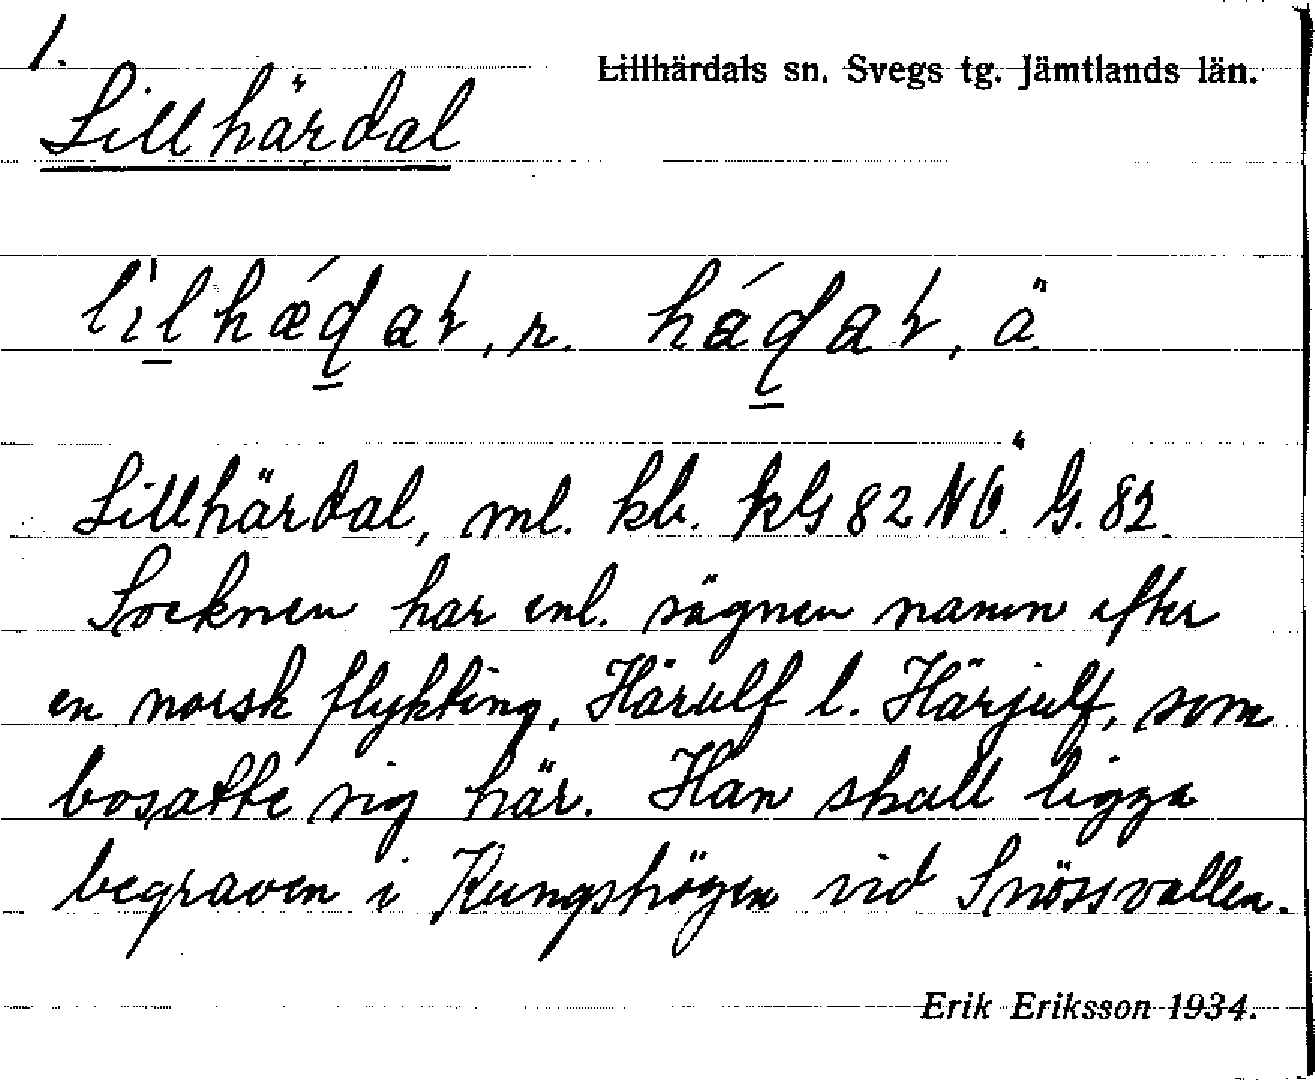 1.
Lillhärdals sn. Svegs tg. Jämtlands län.
Lillhärdal
Lillhärdal, ml. kb. kG 82 NÖ. G. 82.
Socknen har enl. sägnen namn efter
en norsk flykting, Härulf l. Härjulf, som
bosatte sig här. Han skall ligga
begraven i Kungshögen vid Snössvallen.
Erik Eriksson 1934.